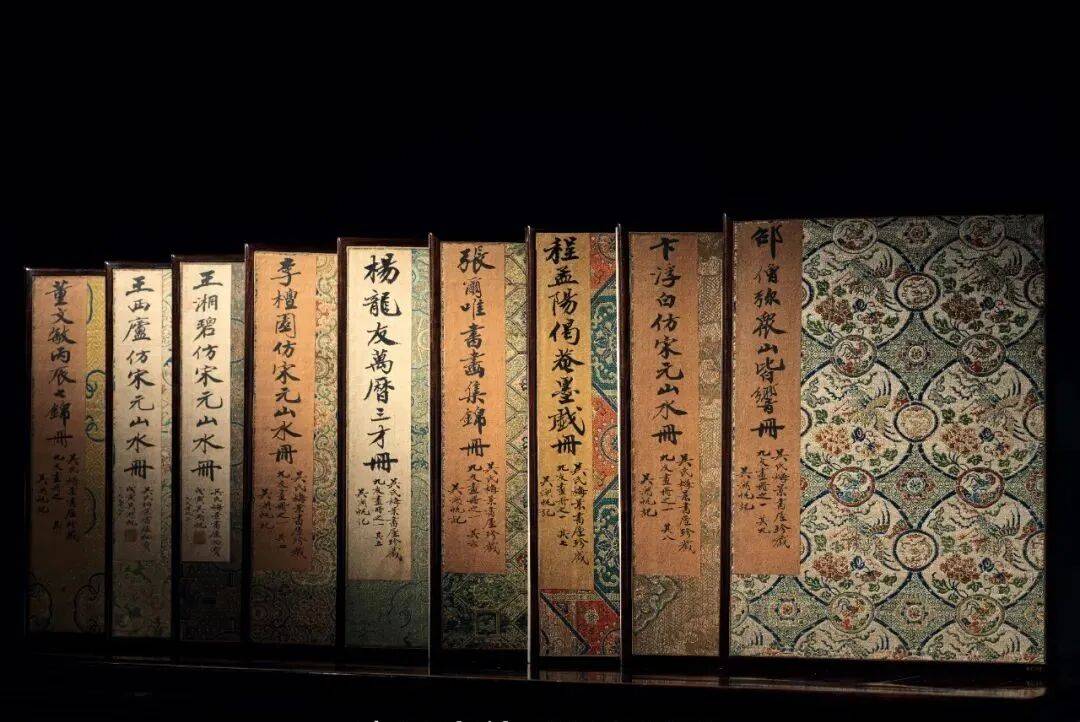 董文敏丙辰七錦冊
吳氏梅景書屋珍藏
九友畫冊之一 其一
吳湖帆記
王西廬仿宋元山水冊
吳氏梅景書屋秘寶
王湘碧仿宋元山水冊
吳氏梅景書屋秘寶
李檀園仿宋元山水冊
吳氏梅景書屋珍藏
九友畫冊之一 其四
吳湖帆記
楊龍友萬曆三才冊
吳氏梅景書屋珍藏
九友畫冊之一 其五
吳湖帆記
張爾唯書畫集錦冊
吳氏梅景書屋珍藏
九友畫冊之一 其六
吳湖帆記
程孟陽偈菴墨戲冊
吳氏梅景書屋珍藏
九友畫冊之一 其七
吳湖帆記
卞淳白仿宋元山水冊
吳氏梅景書屋珍藏
九友畫冊之一 其八
吳湖帆記
邵僧彌衆山皆響冊
吳氏梅景書屋珍藏
九友畫冊之一 其九
吳湖帆記